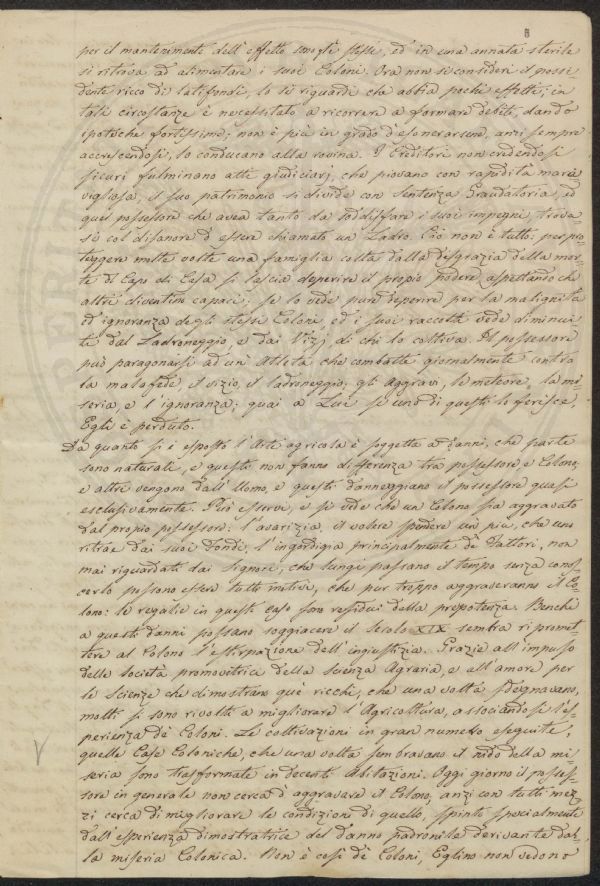 8
per il mantenimento dell'effetto negl'è stessi, ed in una annata sterile
si ritrova ad alimentare i suoi Coloni. Ora non si consideri il possi
dente ricco di latifondi, lo si riguardi che abbia pochi effetti; in
tali circostanze è necessitato a ricorrere a formare debiti, dando
ipoteche fortissime; non è più in grado d'esonerarsene, anzi sempre
accrescendosi, lo conducano alla rovina. I Creditori non credendosi
sicuri fulminano atti giudiciarj, che piovano con rapidità mara
vigliosa, il suo patrimonio si divide con Sentenza Graduatoria, ed
quel possessore che avea tanto da soddisfare i suoi impegni, trova-
si col disonore d'essere chiamato un Ladro. Ciò non è tutto: per pro
teggere molte volte una famiglia colta dalla disgrazia della mor-
te del Capo di Casa si lascia deperire il proprio podere aspettando che
altri diventin capaci; se lo vede pure deperire per la malignità
ed ignoranza degli stessi Coloni, ed i suoi raccolti vede diminui
ti dal Ladroneggio, e dai vizj di chi lo coltiva. Il possessore
può paragonarsi ad un'Atleta che combatte giornalmente contro
la mala fede, il vizio, il ladroneggio; gli Aggravi, le meteore, la mi
seria, e l'ignoranza; guai a Lui se uno di questi lo ferisce,
Egli è perduto.
Da quanto si è esposto l'Arte agricola è soggetta a danni, che parte
sono naturali, e questi non fanno differenza tra possessore, e Colono;
e altri vengono dall'Uomo, e questi danneggiano il possessore quasi
esclusivamente. Può esservi, e si vede che un Colono sia aggravato
dal proprio possessore: l'avarizia, il volere spendere un più, che uno
ritrae dai suoi fondi, l'ingordigia principalmente de' Fattori, non
mai riguardati dai Signori, che lungi passano il tempo senza cono
scerlo possono essere tutti motivi, che pur troppo aggraveranno il Co
lono: le regalie in questi casi sono residui della prepotenza. Benchè
a questi danni possano soggiacere il Secolo XIX sembra ripromet-
tere al Colono l'estirpazione dell'ingiustizia. Grazie all'impulso
delle Società promovitrici della scienza Agraria, e all'amore per
le Scienze che dimostran què ricchi, che una volta sdegnavano,
molti si sono rivolti a migliorare l'Agricoltura, associandosi l'es-
perienza de' Coloni. Le coltivazioni in gran numero eseguite;
quelle Case Coloniche, che una volta sembravano il nido della mi-
seria sono trasformate in decenti abitazioni. Oggi giorno il posses-
sore in generale non cerca d'aggravare il Colono, anzi con tutti mez-
zi cerca di migliorare le condizioni di quello, spinto specialmente
dall'esperienza dimostratrice del danno padronale derivante dal-
la miseria Colonica. Non è così de' Coloni, Eglino non vedono